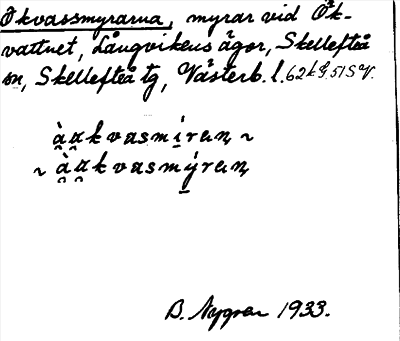 Ökvassmyrarna, myrar vid Ök-
vattnet, Långvikens ägor, Skellefteå
sn, Skellefteå tg, Västerb. l. 62 k 9. 51 SV.
ꭤ̀ꭤkvasmíran ~
~ ꭤ̀ꭤkvasmýran
B. Nygren 1933.